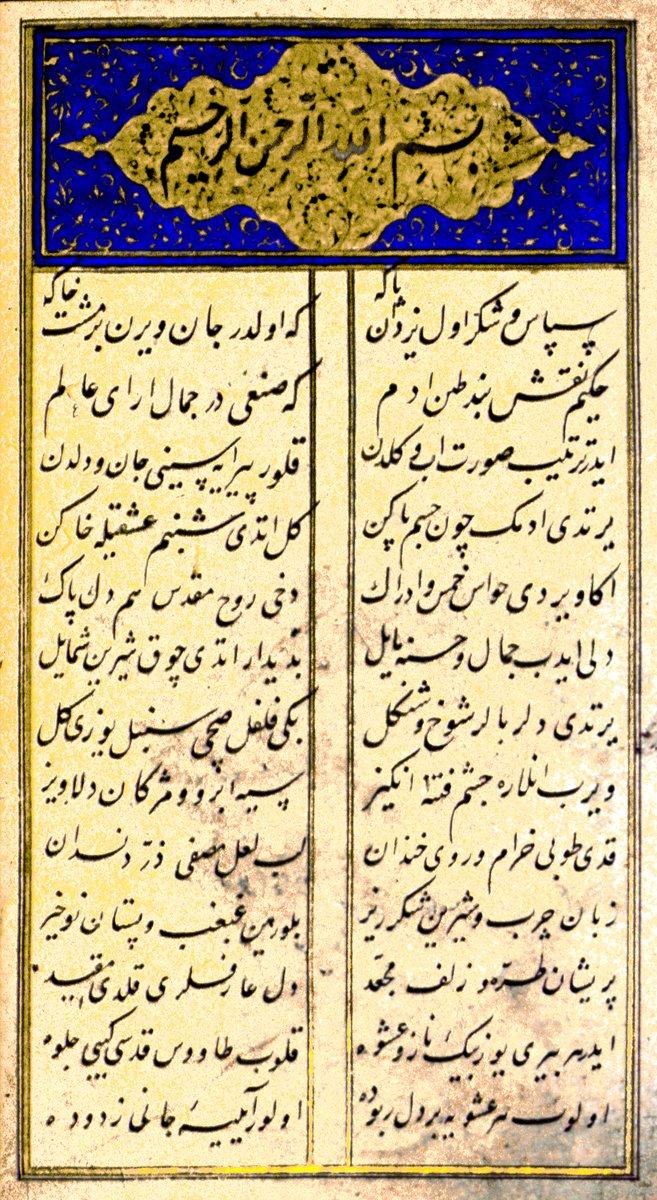 بسم الله الرحمن الرحيم
سپاس و شکر اول یزدان پاکه
که اولدر جان ویرن بر مشت خاکه
حکیم نقش بند طین ادم
که صنعی در جمال ارای عالم
ایدر ترتیب صورت اب و کلدن
قلور پیرایه سینی جان و دلدن
یرتدی ادمک چون جسم پاکن
کل اتدی شبنم عشقیله خاکن
اکا ویردی حواس خمس و ادراك
دخی روح مقدس هم دل پاك
دلی ایدب جمال و حسنه مایل
پدیدار اتدی چوق شیرین شمایل
یرتدی دلربالر شوخ و شنکل
بکی فلفل صچی سنبل یوزی کل
ویرب انلاره چشم فتنه انکیز
سیه ابرو و مژکان دلاویز
قدی طوبی خرام و روی خندان
لب لعل مصفی در دندان
زبان چرب و شیرین شکر ریز
بلورین غبغب و پستان نوخیز
پریشان طره و زلف مجعد
دل عارفلری قلدی مقید
ایدر هر بیری یوز بیك ناز و عشوه
قلوب طاووس قدسی کیبی جلوه
اولوب هر عشوه یه بر دل ربوده
اولور آیینهٔ جانی زدوده